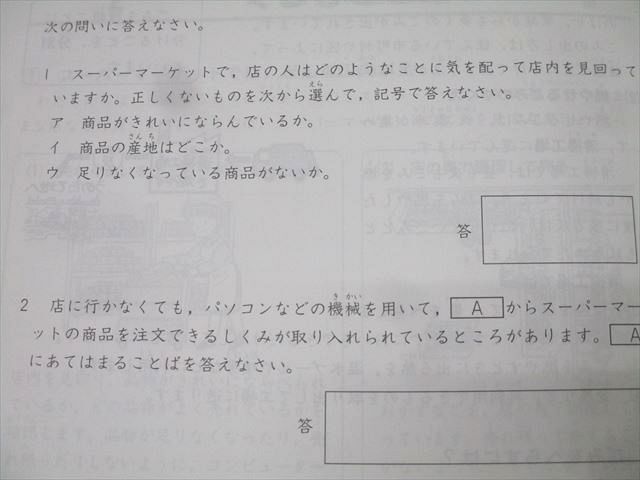 次の問いに答えなさい。
1 スーパーマーケットで，店の人はどのようなことに気を配って店内を見回って
いますか。正しくないものを次から選んで，記号で答えなさい。
ア 商品がきれいにならんでいるか。
イ 商品の産地はどこか。
ウ 足りなくなっている商品がないか。
答
2 店に行かなくても，パソコンなどの機械を用いて， A からスーパーマー
ットの商品を注文できるしくみが取り入れられているところがあります。 A
にあてはまることばを答えなさい。
答